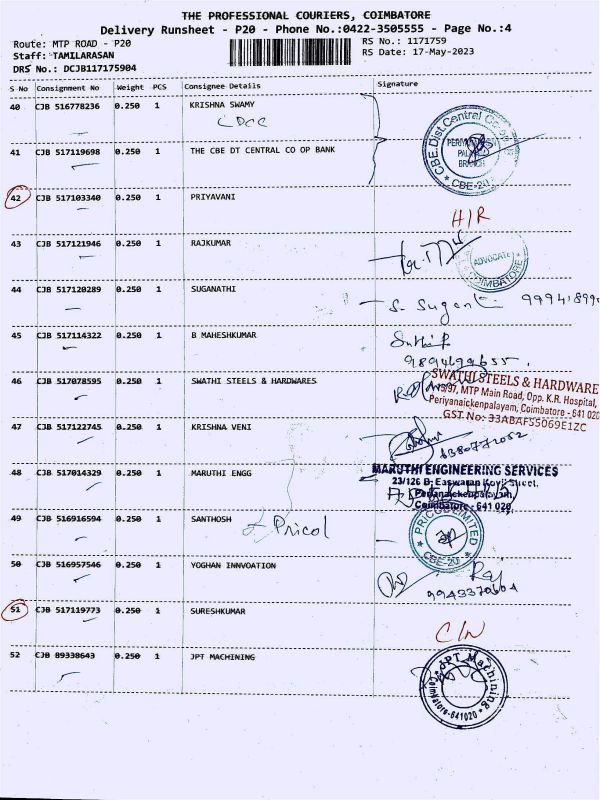 THE PROFESSIONAL COURIERS, COIMBATORE
Delivery Runsheet - P20 - Phone No.:0422-3505555 - Page No.:4
Route: MTP ROAD - P20
RS No.: 1171759
Staff: TAMILARASAN
RS Date: 17-May-2023
DRS No.: DCJB117175904
S No Consignment No Weight PCS Consignee Details Signature
40 CJB 516778236 0.250 1 KRISHNA SWAMY
CDCC
CBE. Dist. Central
PERIYANAICKEN PALAYAM BRANCH
CBE-20
41 CJB 517119698 0.250 1 THE CBE DT CENTRAL CO OP BANK
42 CJB 517103340 0.250 1 PRIYAVANI
H/R
43 CJB 517121946 0.250 1 RAJKUMAR
ADVOCATE
COIMBATORE
44 CJB 517120289 0.250 1 SUGANATHI
S. Suganti
45 CJB 517114322 0.250 1 B MAHESHKUMAR
9894699655
46 CJB 517078595 0.250 1 SWATHI STEELS & HARDWARES
SWATHI STEELS & HARDWARE
MTP Main Road, Opp. K.R. Hospital,
Periyanaickenpalayam, Coimbatore - 641 020
GST No: 33ABAFS5069E1ZC
47 CJB 517122745 0.250 1 KRISHNA VENI
6380772052
48 CJB 517014329 0.250 1 MARUTHI ENGG
MARUTHI ENGINEERING SERVICES
23/126 B, Easwaran Kovil Street,
Periyanaickenpalayam,
Coimbatore - 641 020
49 CJB 516916594 0.250 1 SANTHOSH
Pricol
PRICOL LIMITED
CBE-20
50 CJB 516957546 0.250 1 YOGHAN INNVOATION
Raj
9943370604
51 CJB 517119773 0.250 1 SURESHKUMAR
C/N
52 CJB 89338643 0.250 1 JPT MACHINING
JPT Machining
Coimbatore-641020